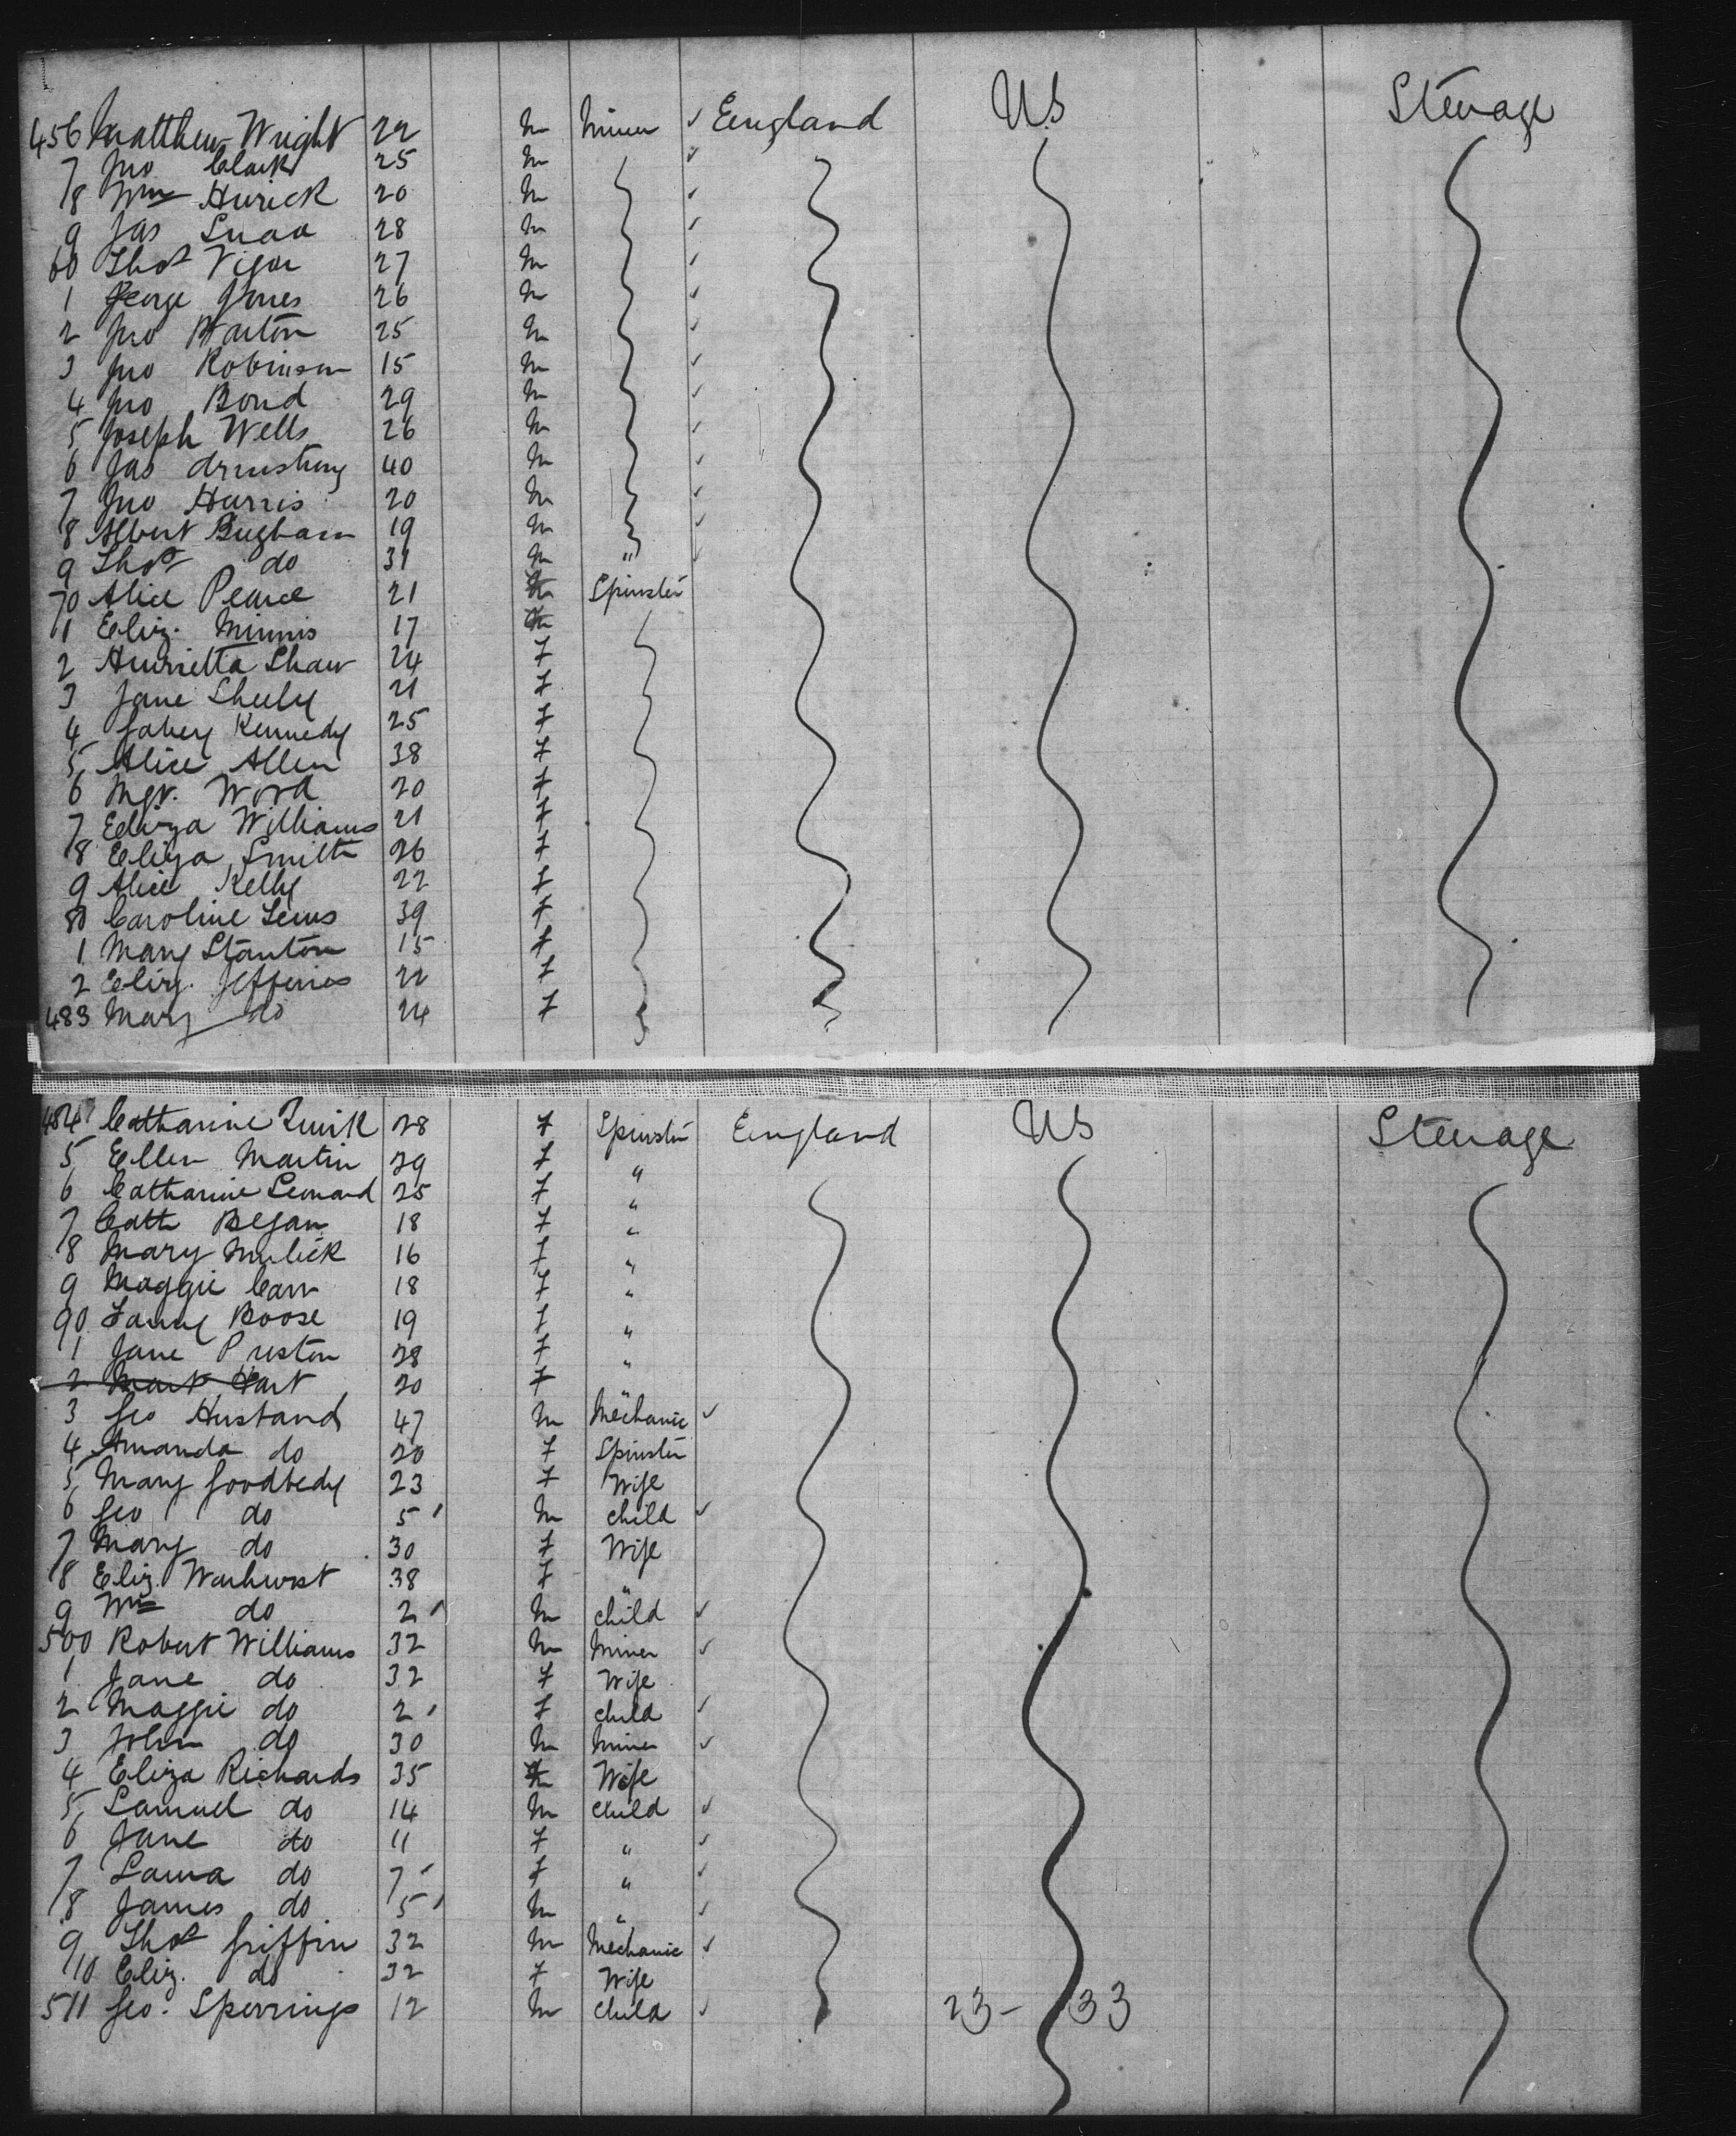 456 Matthew Wright 22 m Miner ✓ England US Steerage
7 Jno Clark 25 m ✓
8 Wm Hurick 20 m ✓
9 Jas 28 m ✓
60 Thos Vigar 27 m ✓
1 George Jones 26 m ✓
2 Jno Barton 25 m ✓
3 Jno Robinson 15 m ✓
4 Jno Bond 29 m ✓
5 Joseph Wells 26 m ✓
6 Jas Armstrong 40 m ✓
7 Jno Harris 20 m ✓
8 Albert Bugham 19 m ✓
9 Thos do 31 m " ✓
70 Alice Pearce 21 Spinster
1 Eliz. Minnis 17
2 Hurrietta Shaw 24 F
3 Jane Sheely 21 F
4 Kennedy 25 F
5 Alice Allen 38 F
6 Mgt. Word 20 F
7 Eliza Williams 21 F
8 Eliza Smith 26 F
9 Alice Kelly 22 F
80 Caroline Lewis 39 F
1 Mary Stanton 15 F
2 Eliz. Jefferies 22 F
483 Mary do 24 F
484 Catharine Quirk 28 F Spinster England US Steerage
5 Ellen Martin 29 F "
6 Catharine Leonard 25 F "
7 Cath Began 18 F "
8 Mary Mulick 16 F "
9 Maggie Carr 18 F "
90 Fanny Boose 19 F "
1 Jane Preston 28 F "
2 Mart Hart 20 F "
3 Geo Husband 47 m Mechanic ✓
4 Amanda do 20 F Spinster
5 Mary Goodbedy 23 F Wife
6 Geo do 5 m child ✓
7 Mary do 30 F Wife
8 Eliz. Warhurst 38 F "
9 Wm do 2 m child ✓
500 Robert Williams 32 m Miner ✓
1 Jane do 32 F Wife
2 Maggie do 2 F child ✓
3 John do 30 m Miner ✓
4 Eliza Richards 35 F Wife
5 Samuel do 14 m child ✓
6 Jane do 11 F " ✓
7 Laura do 7 F " ✓
8 James do 5 m " ✓
9 Thos Griffin 32 m Mechanic ✓
10 Eliz. do 32 F Wife
511 Geo. Sperrings 12 m child ✓ 23 - 33